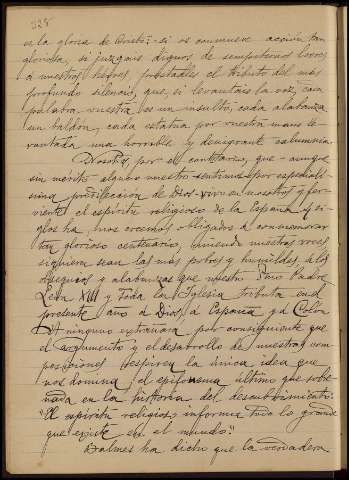 228
es la gloria de Cristo: si os conmueve acción tan
gloriosa, si juzgais dignos de sempiterno loor
á nuestros héroes, prestadles el tributo del más
profundo silencio, que, si levantais la voz, cada
palabra vuestra es un insulto, cada alabanza
un baldón, cada estatua por vuestra mano le-
vantada una horrible y denigrante calumnia.
Nosotros, por el contrario, que - aunque
sin mérito alguno nuestro - sentimos por especialí-
sima predilección de Dios vivo en nosotros y fer-
viente el espíritu religioso de la España
glos ha, nos creemos obligados á conmemorar
tan glorioso centenario, uniendo nuestras voces,
siquiera sean las más pobres y humildes, á los
obsequios y alabanzas que nuestro Smo Padre
León XIII y toda la Iglesia tributa en el
presente año á Dios, á España y á Colón
A ninguno extrañará por consiguiente que
el argumento y el desarrollo de nuestras com-
posiciones respiren la única idea que
nos domina, el epifonema último que sobre-
nada en la historia del descubrimiento:
"El espíritu religioso informa todo lo grande
que existe en el mundo."
Balmes ha dicho que la verdadera